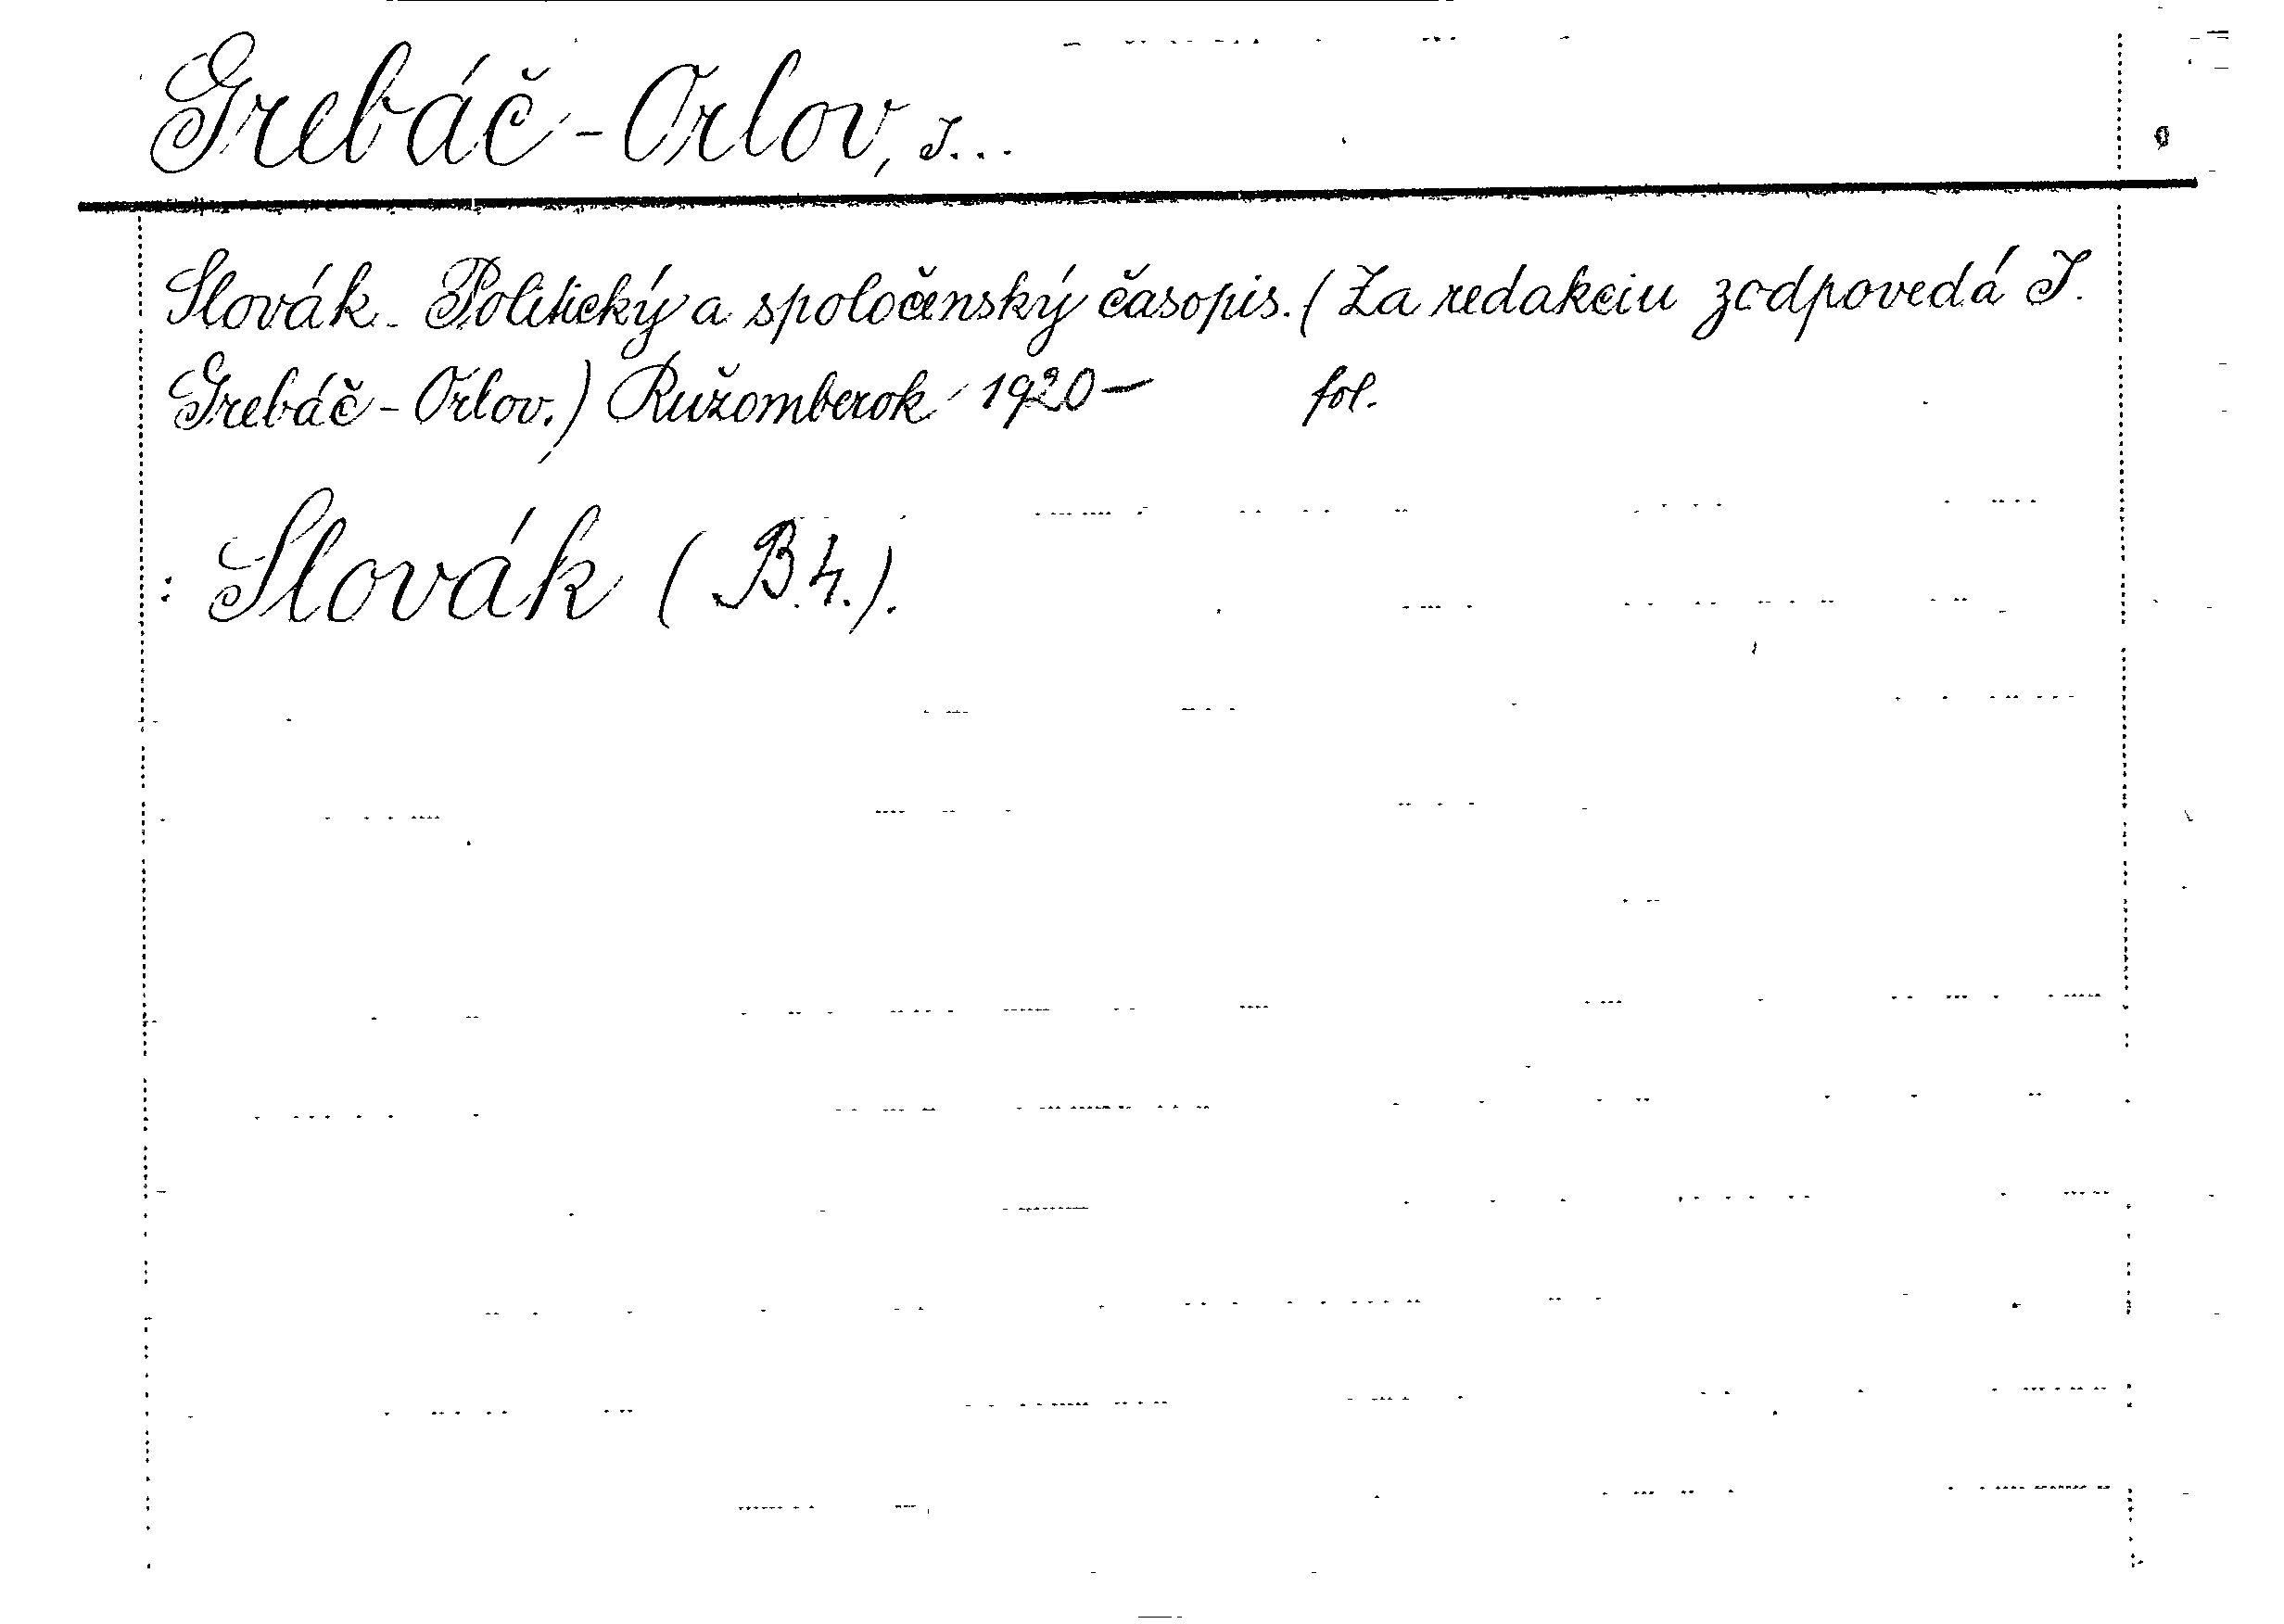 Grebáč-Orlov, I...
Slovák. Politický a spoločenský časopis. (Za redakciu zodpovedá I.
Grebáč-Orlov.) Ružomberok 1920- fol.
: Slovák (B.4.).